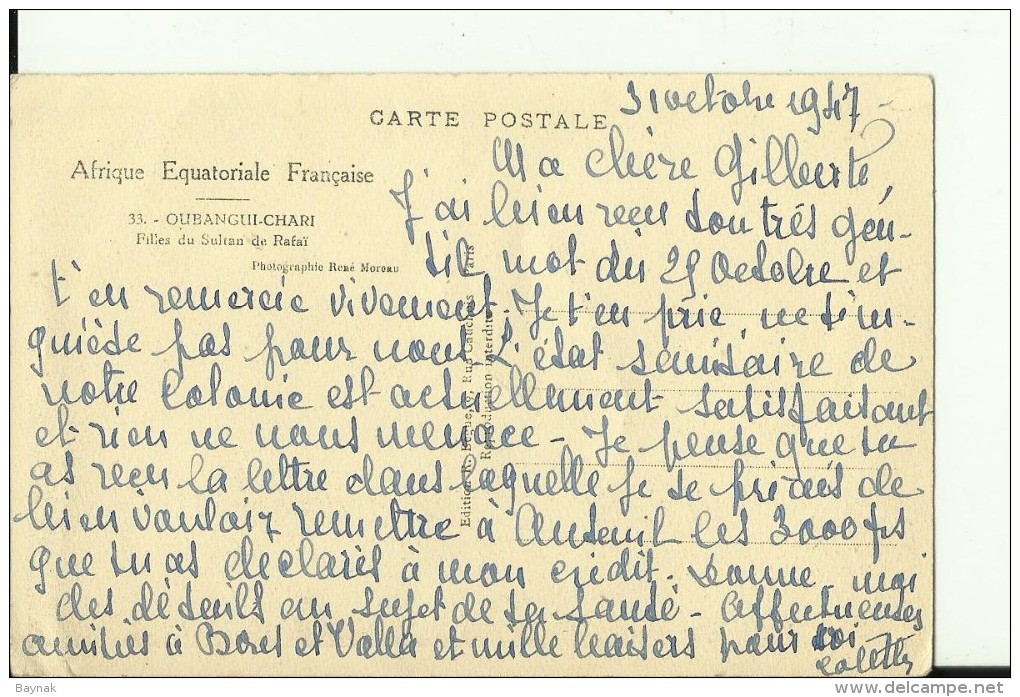 31 octobre 1947
CARTE POSTALE
Ma chère Gilberte,
Afrique Equatoriale Française
33. - OUBANGUI-CHARI
Filles du Sultan de Rafaï
Photographie René Moreau
J'ai bien reçu ton très gen-
til mot du 25 Octobre et
t'en remercie vivement. Je t'en prie, ne t'in-
quiède pas pour nous. L'état sanitaire de
notre Colonie est actuellement satisfaisant
et rien ne nous menace - Je pense que tu
as reçu la lettre dans laquelle je te priais de
bien vouloir remettre à Auteuil les 3000 frs
que tu as déclarés à mon crédit. Donne-moi
des détails au sujet de ta santé - Affectueuses
amitiés à Boret et Valla et mille baisers pour toi
Colette
Edition R. Rue Cauchois Paris
Reproduction interdite
Baynak
www.delcampe.net